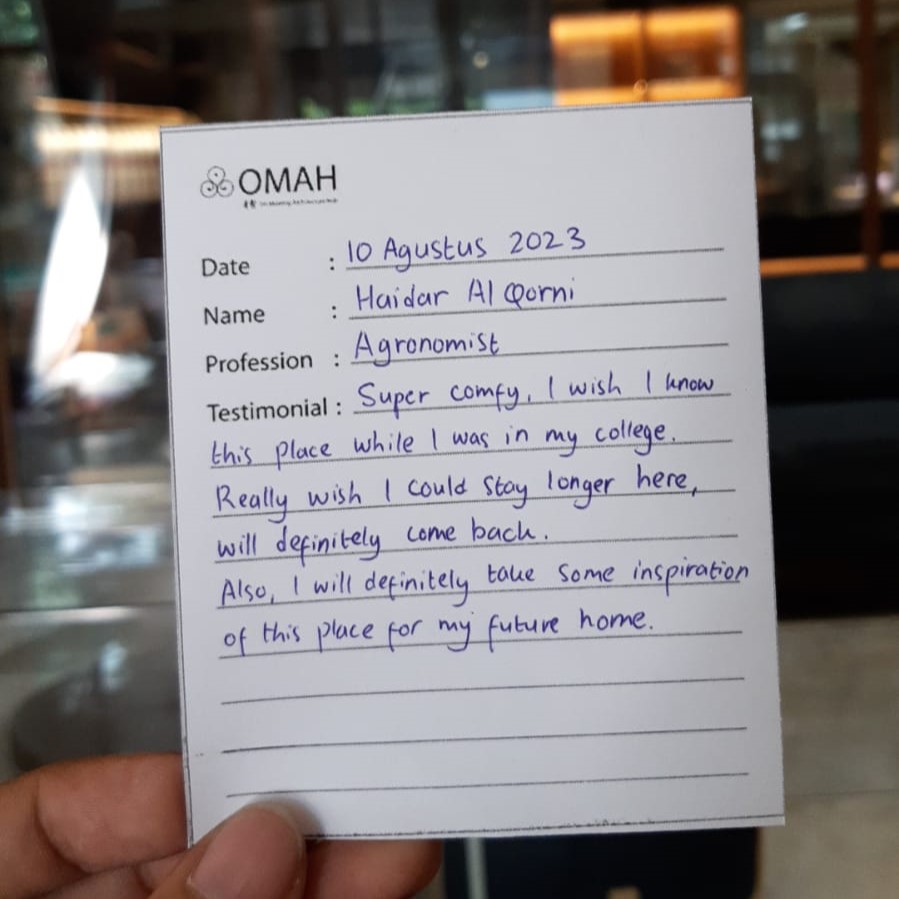 OMAH
Date : 10 Agustus 2023
Name : Haidar Al Qorni
Profession : Agronomist
Testimonial : Super comfy, I wish I know
this place while I was in my college.
Really wish I could stay longer here,
will definitely come back.
Also, I will definitely take some inspiration
of this place for my future home.